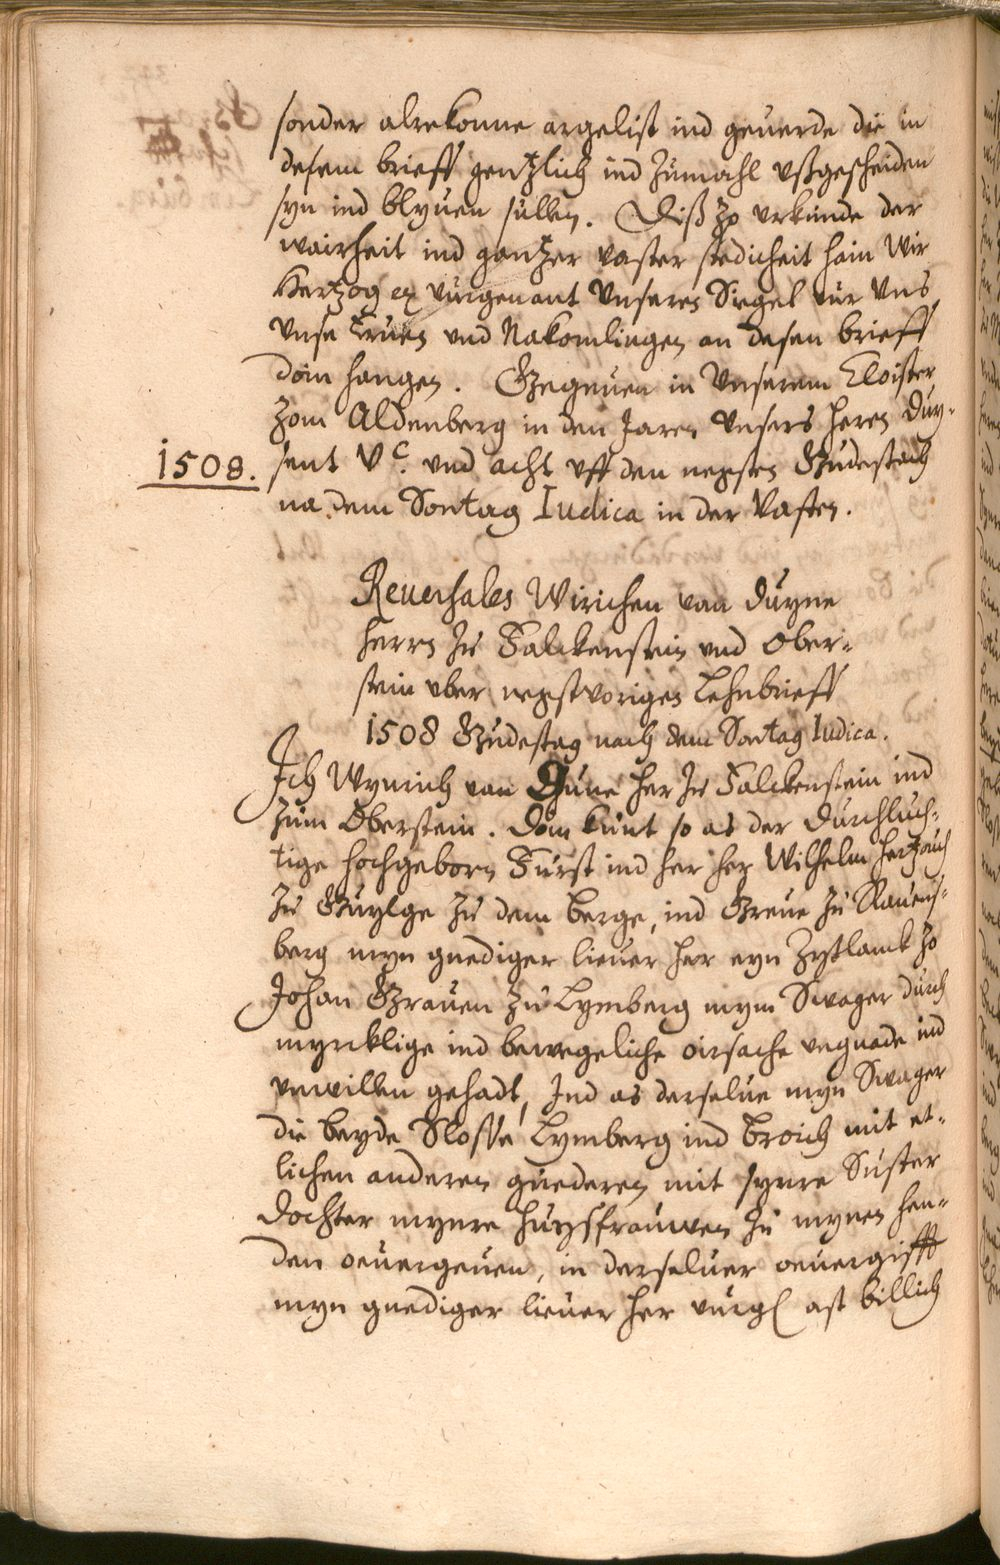 sonder alrekonne argelist ind geuerde die in
desem brieff gentzlich ind zumahl ußgescheiden
syn ind blyuen sullen. Diß zo urkunde der
wairheit ind gantzer vaster stedicheit hain Wir
Hertzog vurgenant Unseren Siegel vur Uns
Unse Eruen und Nakomlingen an desen brieff
doin hangen. Gegeuen in Unserem Cloister
zom Aldenberg in den Jaren Unsers heren Duy-
1508. sent Vc. und acht uff den nexsten Gudestach
na dem Sontag Iudica in der Vasten.
Reuersales Wirichen van Duyne
Herrn zu Falckenstein und Ober-
stein uber nexstvorigen Lehnbrieff
1508 Gudestag nach dem Sontag Iudica.
Ich Wynrich van Dune her zu Falckenstein ind
zum Oberstein. Doin kunt so as der Durchluch-
tige hochgeborn Furst ind her her Wilhelm hertzouch
zu Guylge zu dem berge, ind Greue zu Rauens-
berg myn gnediger lieuer her eyn Zytlanck zo
Johan Grauen zu Lymberg mym Swager durch
myrcklige ind bewegeliche oirsache ungnade ind
unwillen gehadt, Ind as derselue myn Swager
die beyde Slosse Lymberg ind broich mit et-
lichen anderen guederen mit synre Suster
Dochter mynre huysfrauwen zu mynen hen-
den oeuergeuen, in derseluer oeuergifft
myn gnediger lieuer her vurg ast billich